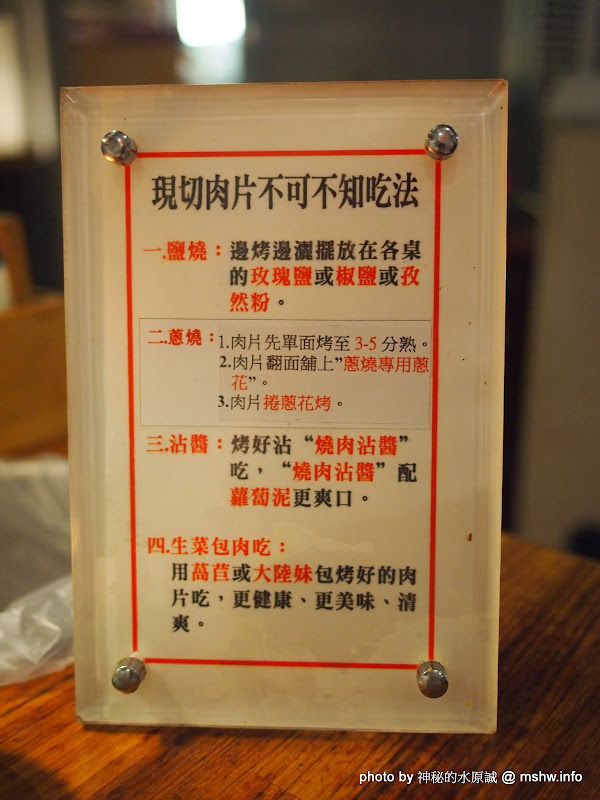 現切肉片不可不知吃法
一.鹽燒：邊烤邊灑擺放在各桌
的玫瑰鹽或椒鹽或孜
然粉。
二.蔥燒：1.肉片先單面烤至 3-5 分熟。
2.肉片翻面舖上”蔥燒專用蔥
花”。
3.肉片捲蔥花烤。
三.沾醬：烤好沾“燒肉沾醬”
吃，“燒肉沾醬”配
蘿蔔泥更爽口。
四.生菜包肉吃：
用萵苣或大陸妹包烤好的肉
片吃，更健康、更美味、清
爽。
photo by 神秘的水原誠 @ mshw.info